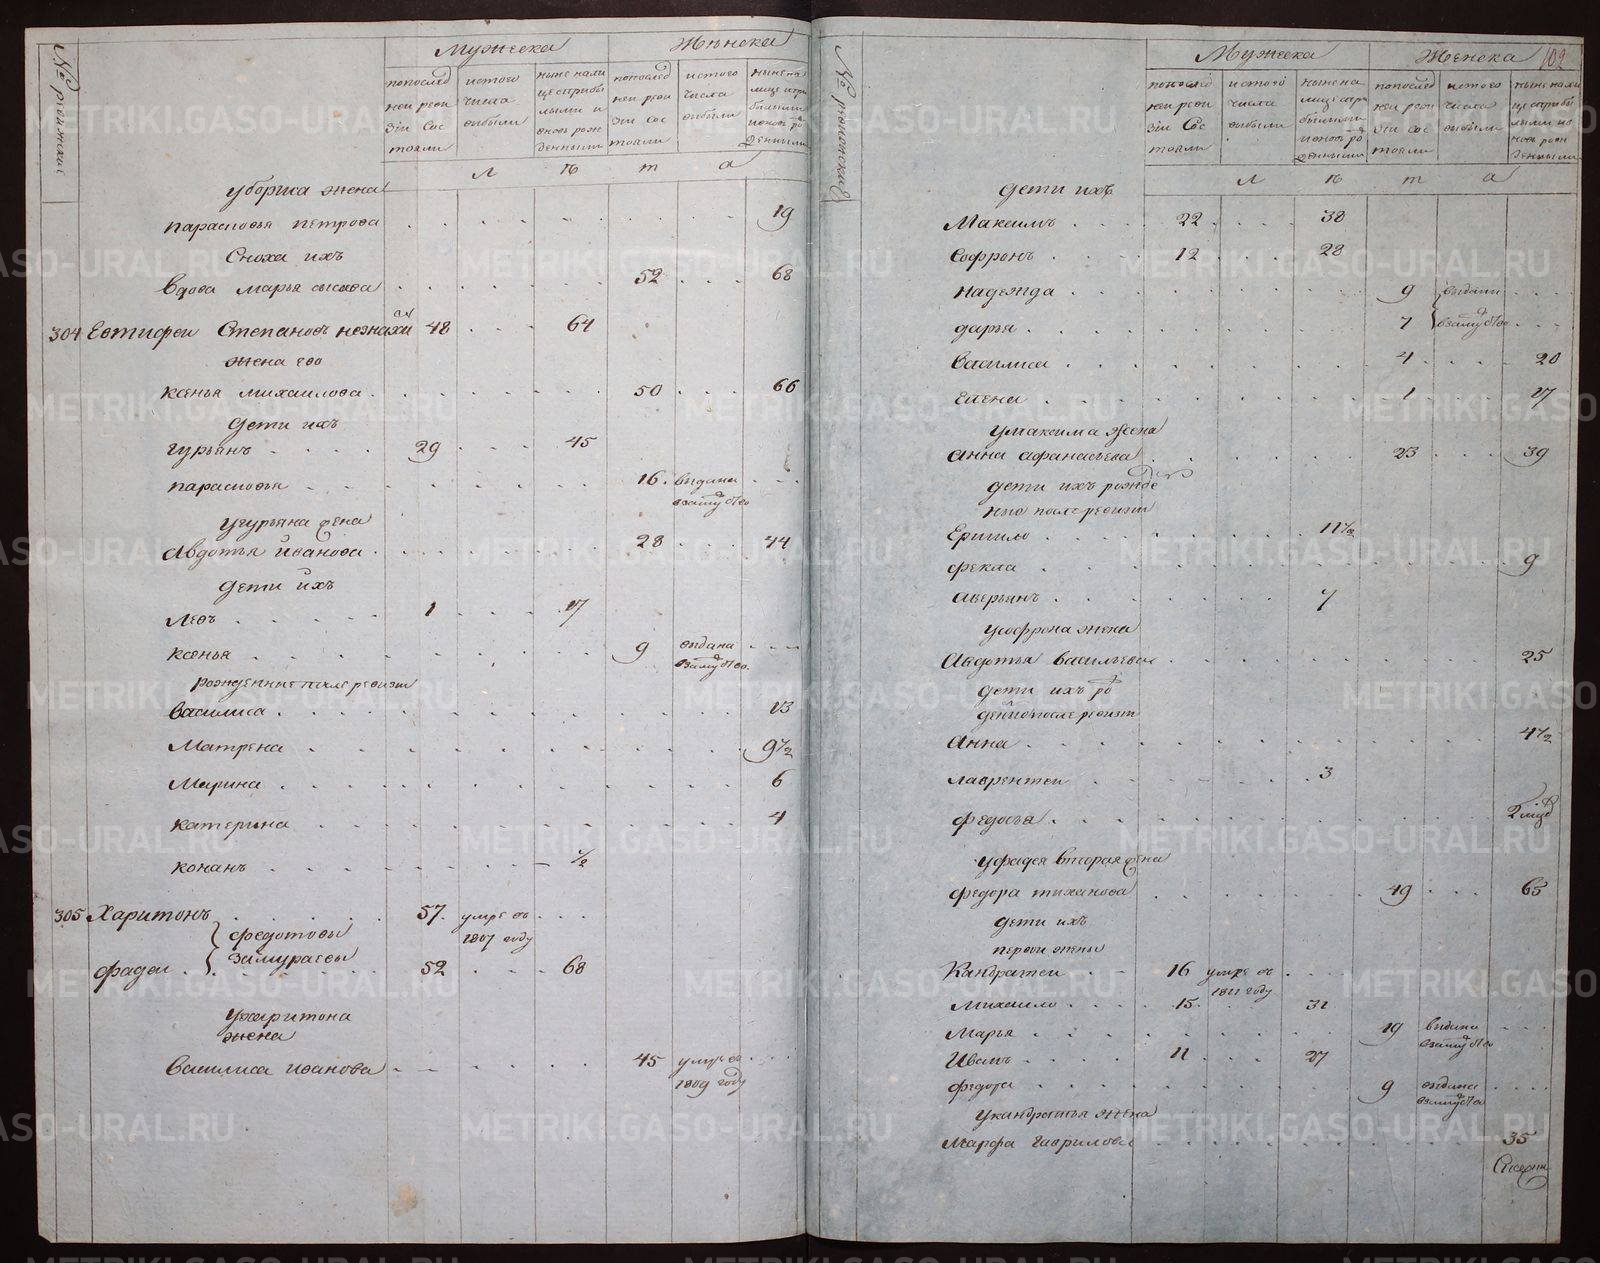 № ревижские
Мужеска
Женска
попослед
ней реви
зіи Сос
тояли
истого
числа
выбыли
ныне нали
це сприбы
лыми и
вновь рож
денными
попослед
ней реви
зіи сос
тояли
истого
числа
выбыли
ныне на
лице спри
былыми
и вновь ро
жденными
л ѣ т а
у бориса жена
парасковья петрова 19
Сноха ихъ
вдова марья 52 68
304 Евтифеи Степановъ 48 64
жена его
ксенья михаилова 50 66
дети ихъ
гурьянъ 29 45
парасковья 16 выдана
взамужство
у гурьяна жена
Авдотья иванова 28 44
дети ихъ
левъ 1 17
ксенья 9 выдана
взамужство
рожденные после ревизи
василиса 13
Матрена 9 1/2
Марина 6
катерина 4
кононъ 1/2
305 Харитонъ 57 умре въ
1807 году
федотовы
замураевы
фадеи 52 68
ухаритона
жена
василиса иванова 45 умре въ
1809 году
Мужеска
Женска
102
попослед
ней реви
зіи Сос
тояли
истого
числа
выбыли
ныне на
лице спри
былыми
и вновь ро
жденными
попослед
ней реви
зіи сос
тояли
истого
числа
выбыли
ныне нали
це сприбы
лыми и в
новь рож
денными
л ѣ т а
дети ихъ
Максимъ 22 38
Софронъ 12 28
надежда 9 выданы
дарья 7 взамужство
василиса 4 20
елена 1 17
умаксима жена
анна афанасьева 23 39
дети ихъ рожде
ные после ревизи
Ермило 11 1/2
фекла 9
аверьянъ 7
усофрона жена
Авдотья васильева 25
дети ихъ рож
денные после ревизи
Анна 4 1/2
лаврентеи 3
федосья 2 мцо
уфадея вторая жена
федора тиханова 49 65
дети ихъ
первои жены
Кандратеи 16 умре въ
1811 году
михаило 15 31
марья 19 выдана
взамужство
Иванъ 11 27
федора 9 выдана
взамужство
укандратья жена
Марфа гаврилова 35
METRIKI.GASO-URAL.RU